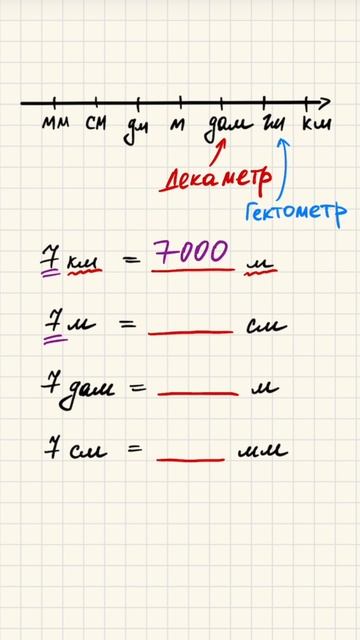 мм см дм м дам гм км
Декаметр
Гектометр
7 км = 7000 м
7 м = ____ см
7 дам = ____ м
7 см = ____ мм